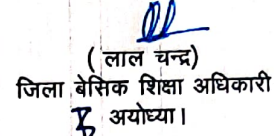 ( लाल चन्द्र)
जिला बेसिक शिक्षा अधिकारी
अयोध्या।